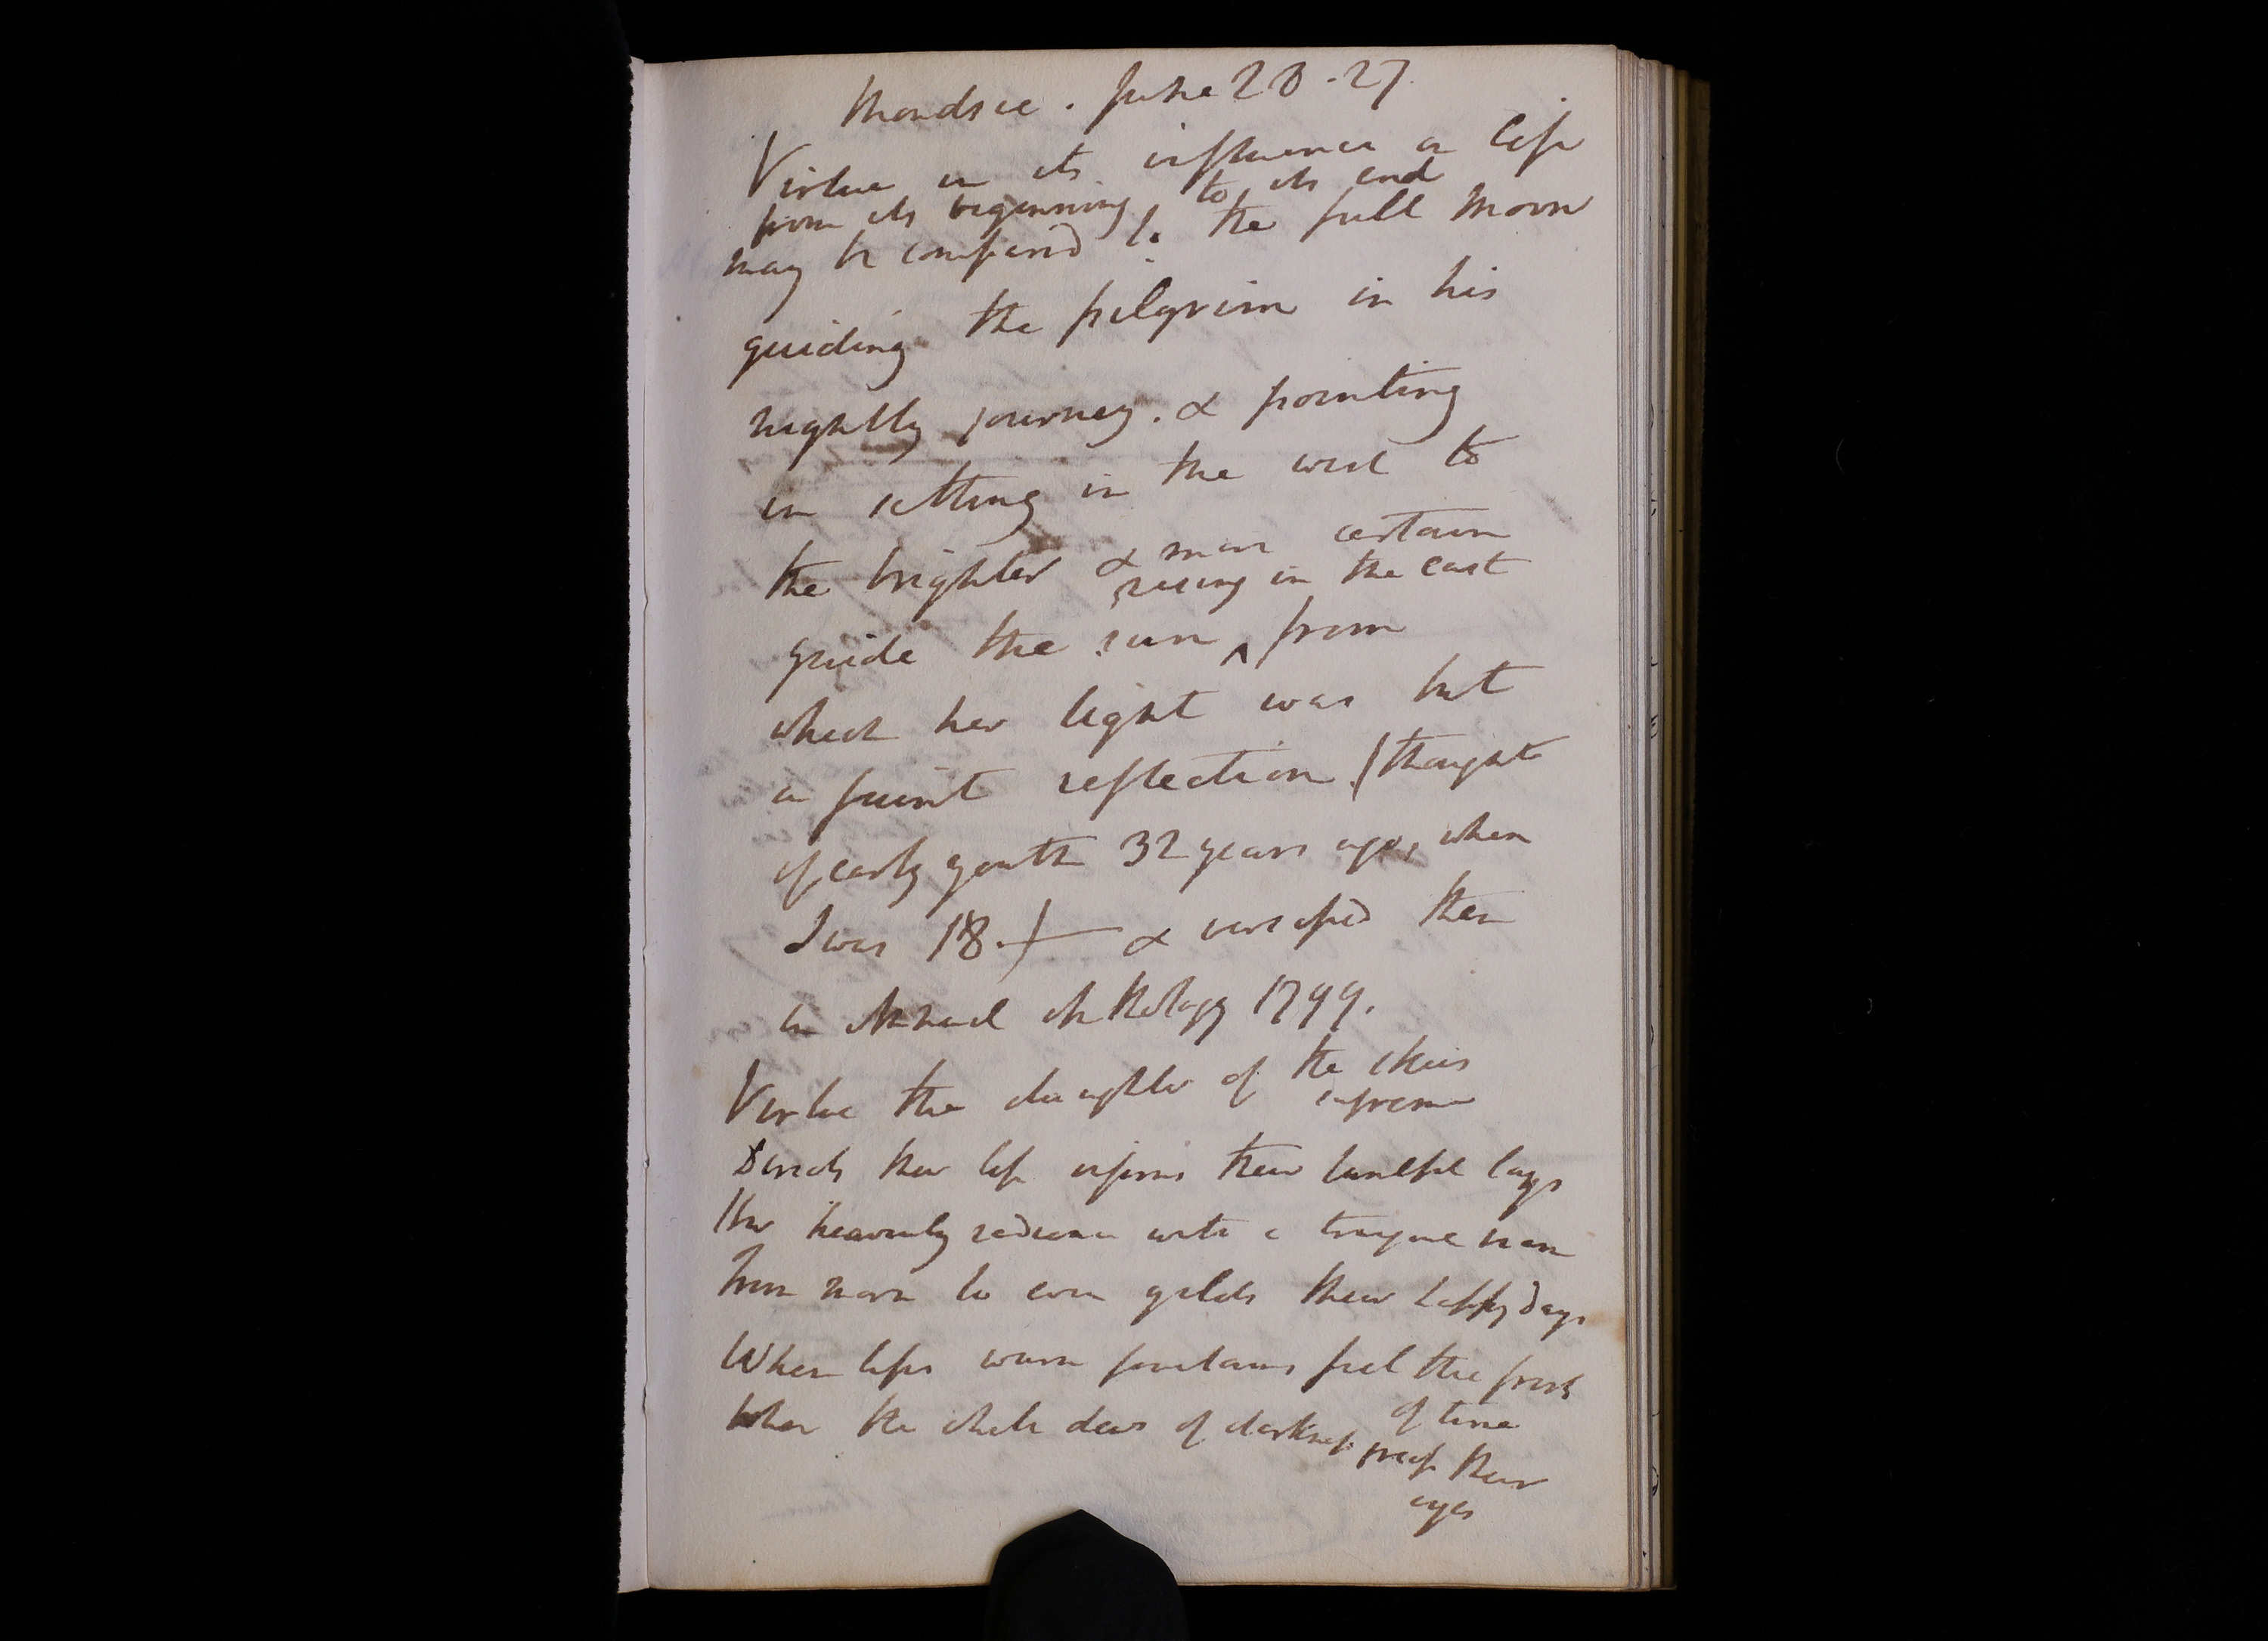 Mondsee. June 28 - 27.
Virtue in its influence on life
from its beginning to its end
may be compared to the full Moon
guiding the pilgrim in his
nightly journey. & pointing
in setting in the west to
the brighter & more certain
rising in the east
guide the sun ^ from
which her light was but
a faint reflection (thoughts
of early youth 32 years ago, when
I was 18.) & versified then
in Annual Anthology 1799.
Virtue the daughter of the skies
supreme
Directs their life informs their tuneful lays
Her heavenly radiance with a tranquil beam
From morn to even gilds their happy days
When lifes warm fountains feel the frost
of time
When the dews of darkness their
eyes